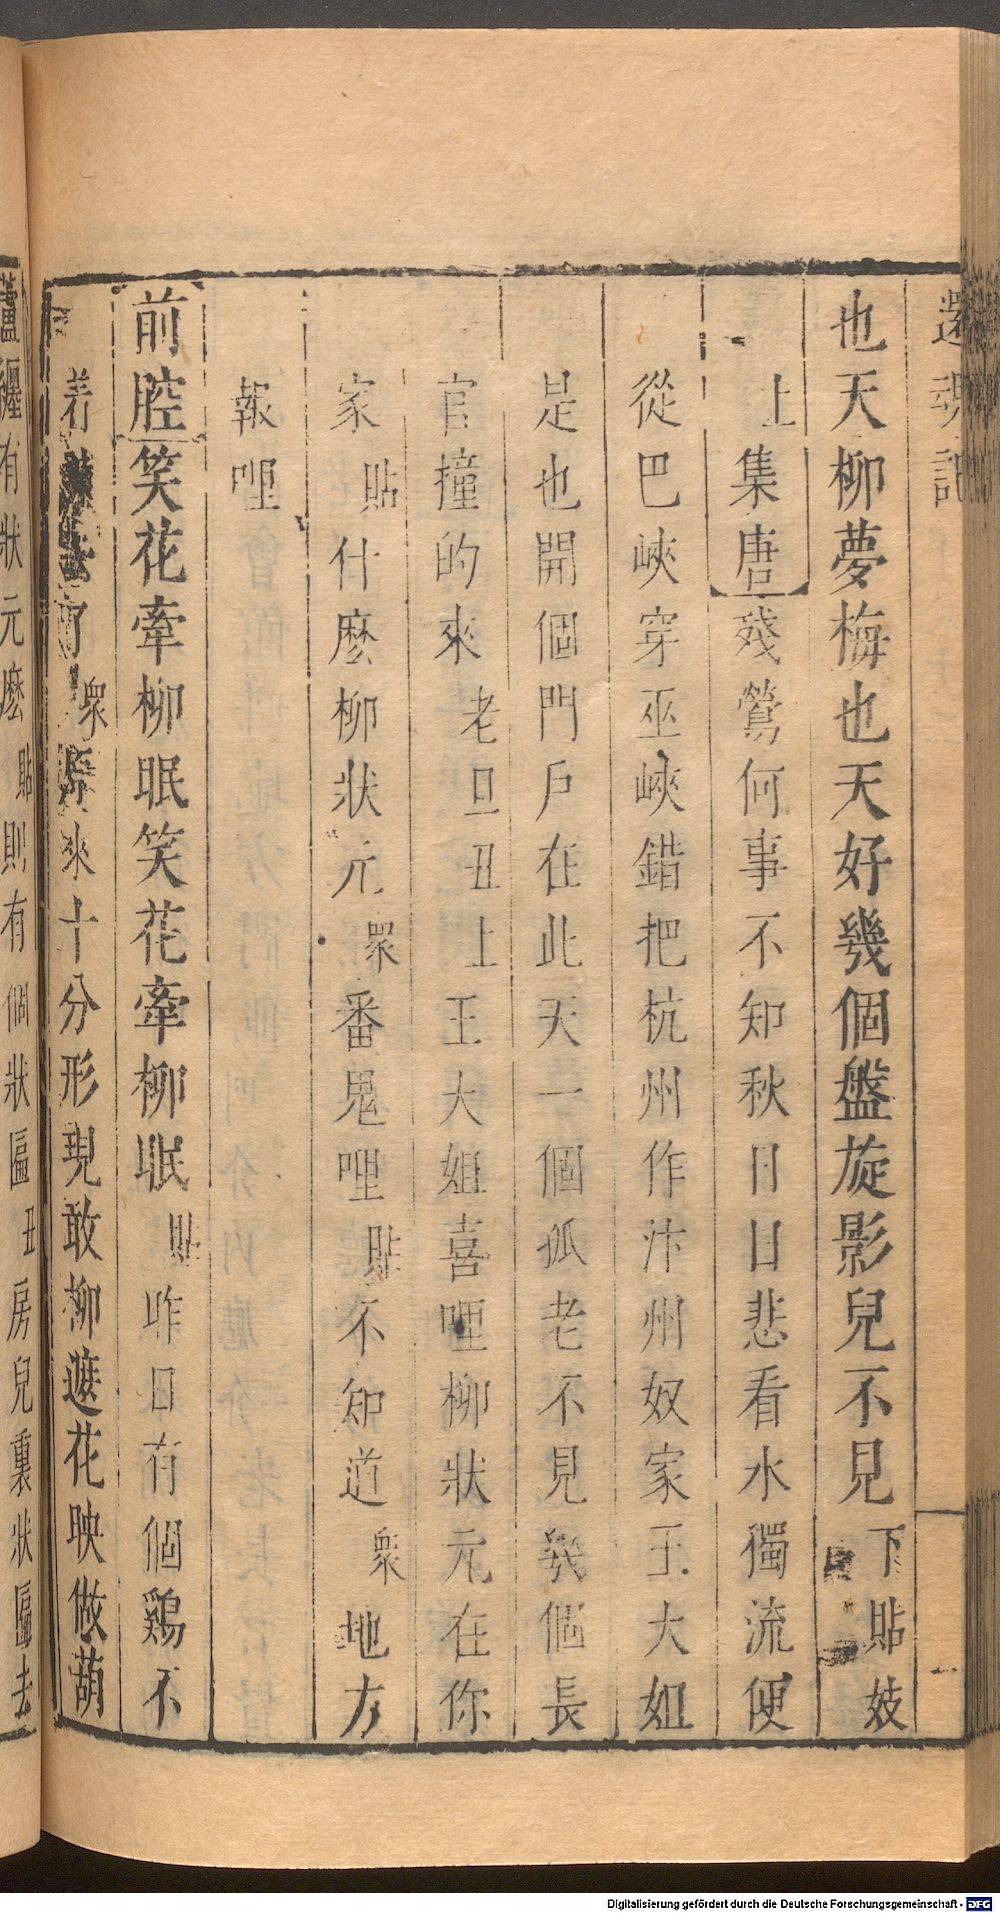 還魂記
也天柳夢梅也天好幾個盤旋影兒不見下貼妓
上集唐殘鶯何事不知秋日日悲看水獨流便
從巴峽穿巫峽錯把杭州作汴州奴家王大姐
是也開個門戶在此天一個孤老不見幾個長
官撞的來老旦丑上王大姐喜哩柳狀元在你
家貼什麽柳狀元眾番鬼哩貼不知道眾地方
報哩
前腔笑花牽柳眠笑花牽柳眠貼昨日有個鷄不
着 了眾原來十分形現敢柳遮花映做葫
蘆纏有狀元麽貼則有個狀匾丑房兒裏狀匾去
Digitalisierung gefördert durch die Deutsche Forschungsgemeinschaft - DFG